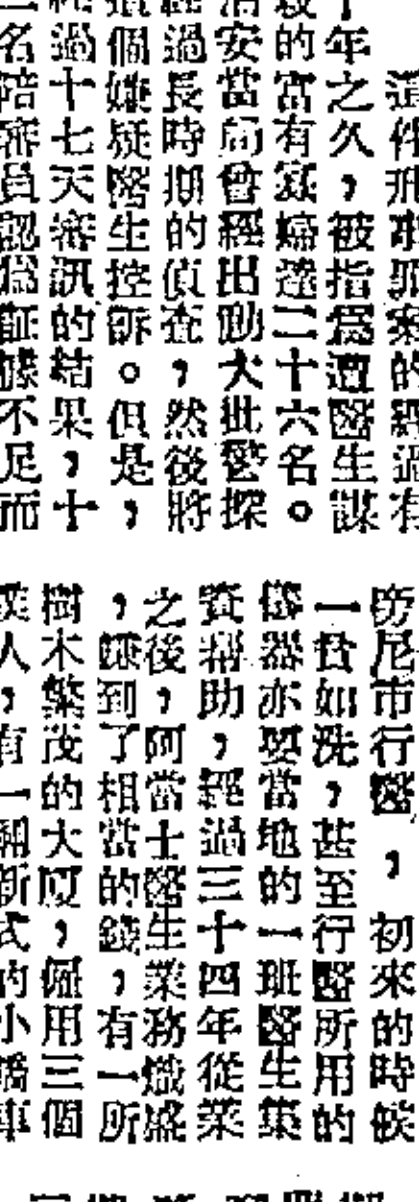 這件刑事驅案的經過有
年之久，被指爲遭醫生謀
的富有寡婦達二十六名。
安當局曾經出動大批警探
過長時期的偵查，然後將
個嫌疑醫生控訴。但是，
過十七天審訊的結果，十
名陪審員認為証據不足而
旁尼市行醫，初來的時候
一貧如洗，甚至行醫所用的
儀器亦要當地的一班醫生集
資幫助，經過三十四年從業
之後，阿當士醫生業務熾盛
，賺到了相當的錢，有一所
樹木繁茂的大厦，僱用三個
僕人，有一輛新式的小轎車